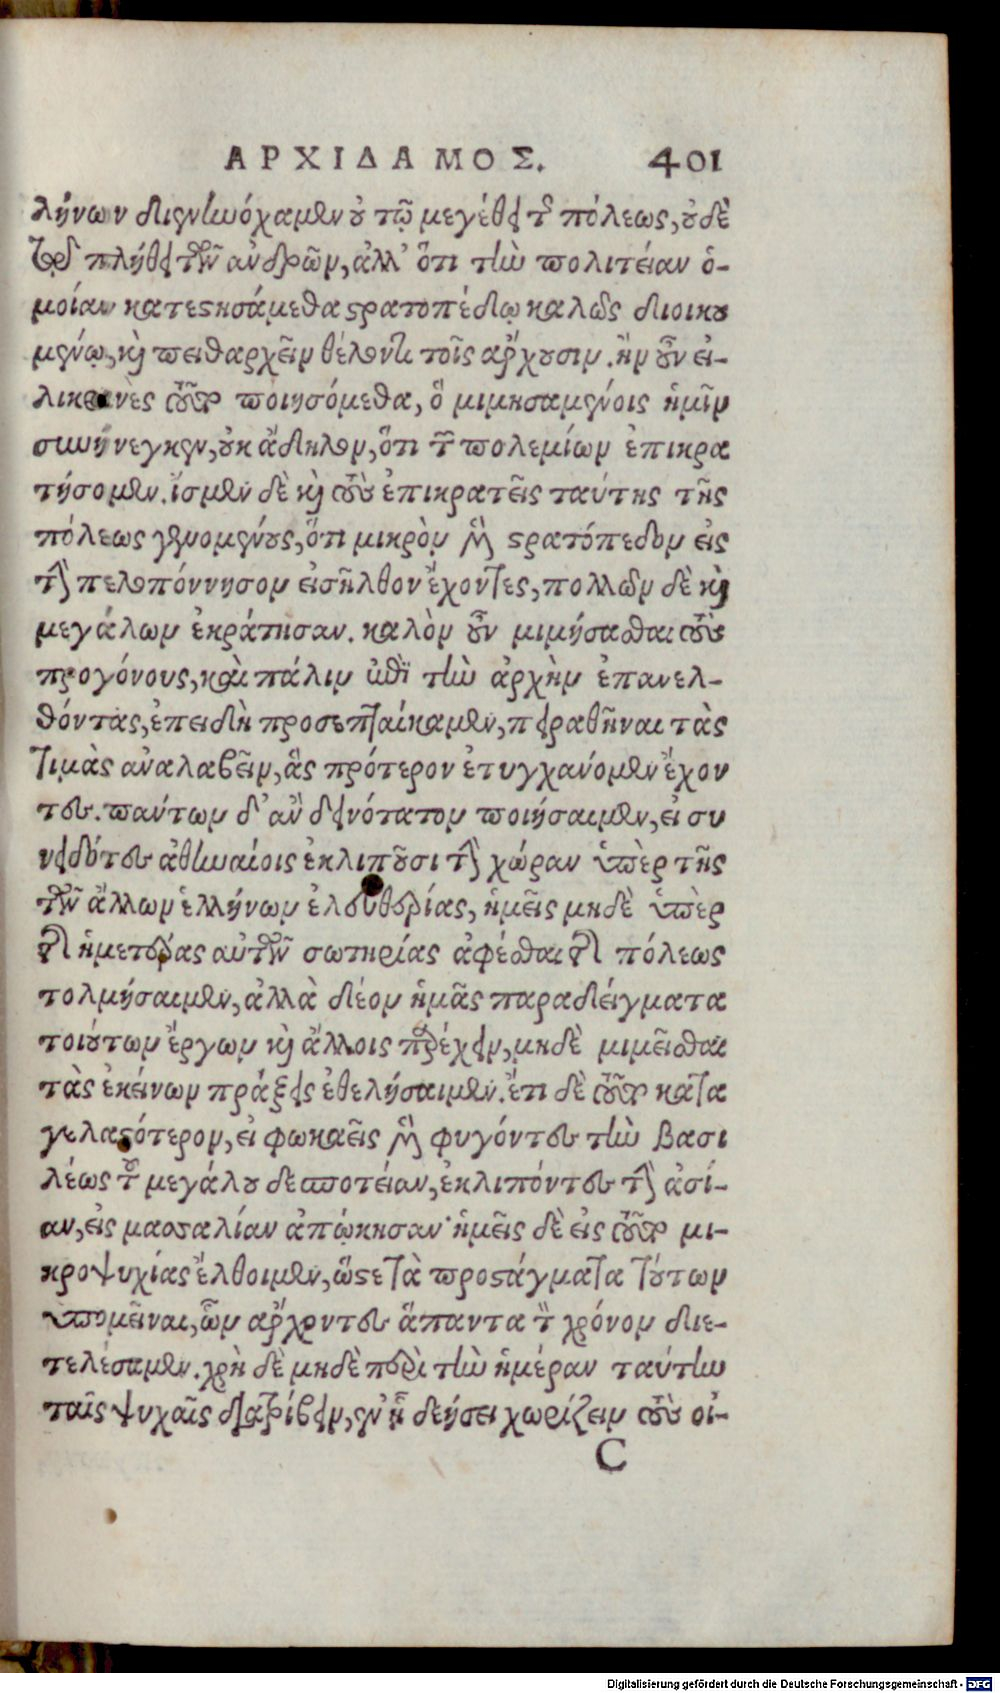 ΑΡΧΙΔΑΜΟΣ. 401
λήνων διενηνόχαμεν οὐ τῷ μεγέθει τῆς πόλεως, οὐδὲ
τῷ πλήθει τῶν ἀνδρῶν, ἀλλ' ὅτι τὴν πολιτείαν ὁ-
μοίαν κατεστησάμεθα στρατοπέδῳ καλῶς διοικου
μένῳ, καὶ πειθαρχεῖν θέλοντι τοῖς ἄρχουσιν. ἢν οὖν εἰ-
λικρινὲς τοῦτο ποιησόμεθα, ὃ μιμησαμένοις ἡμῖν
συνήνεγκεν, οὐκ ἄδηλον, ὅτι τῶν πολεμίων ἐπικρα
τήσομεν. ἴσμεν δὲ καὶ τοὺς ἐπικρατεῖς ταύτης τῆς
πόλεως γενομένους, ὅτι μικρὸν μὲν στρατόπεδον εἰς
τὴν πελοπόννησον εἰσῆλθον ἔχοντες, πολλῶν δὲ καὶ
μεγάλων ἐκράτησαν. καλὸν οὖν μιμήσασθαι τοὺς
προγόνους, καὶ πάλιν ἐπὶ τὴν ἀρχὴν ἐπανελ-
θόντας, ἐπειδὴ προσεπταίκαμεν, πειραθῆναι τὰς
τιμὰς ἀναλαβεῖν, ἃς πρότερον ἐτυγχάνομεν ἔχον
τες. πάντων δ' ἂν δεινότατον ποιήσαιμεν, εἰ συ
νειδότες ἀθηναίοις ἐκλιποῦσι τὴν χώραν ὑπὲρ τῆς
τῶν ἄλλων ἑλλήνων ἐλευθερίας, ἡμεῖς μηδὲ ὑπὲρ
τῆς ἡμετέρας αὐτῶν σωτηρίας ἀφέσθαι τῆς πόλεως
τολμήσαιμεν, ἀλλὰ δέον ἡμᾶς παραδείγματα
τοιούτων ἔργων καὶ ἄλλοις παρέχειν, μηδὲ μιμεῖσθαι
τὰς ἐκείνων πράξεις ἐθελήσαιμεν. ἔτι δὲ τοῦτο κατα
γελαστότερον, εἰ φωκαεῖς μὲν φυγόντες τὴν βασι
λέως τοῦ μεγάλου δεσποτείαν, ἐκλιπόντες τὴν ἀσί-
αν, εἰς μασσαλίαν ἀπῴκησαν· ἡμεῖς δὲ εἰς τοῦτο μι-
κροψυχίας ἔλθοιμεν, ὥστε τὰ προστάγματα τούτων
ὑπομεῖναι, ὧν ἄρχοντες ἅπαντα τὸν χρόνον διε-
τελέσαμεν. χρὴ δὲ μηδὲ περὶ τὴν ἡμέραν ταύτην
ταῖς ψυχαῖς διατρίβειν, ἐν ᾗ δεήσει χωρίζειν τοὺς οἰ-
C
Digitalisierung gefördert durch die Deutsche Forschungsgemeinschaft - DFG